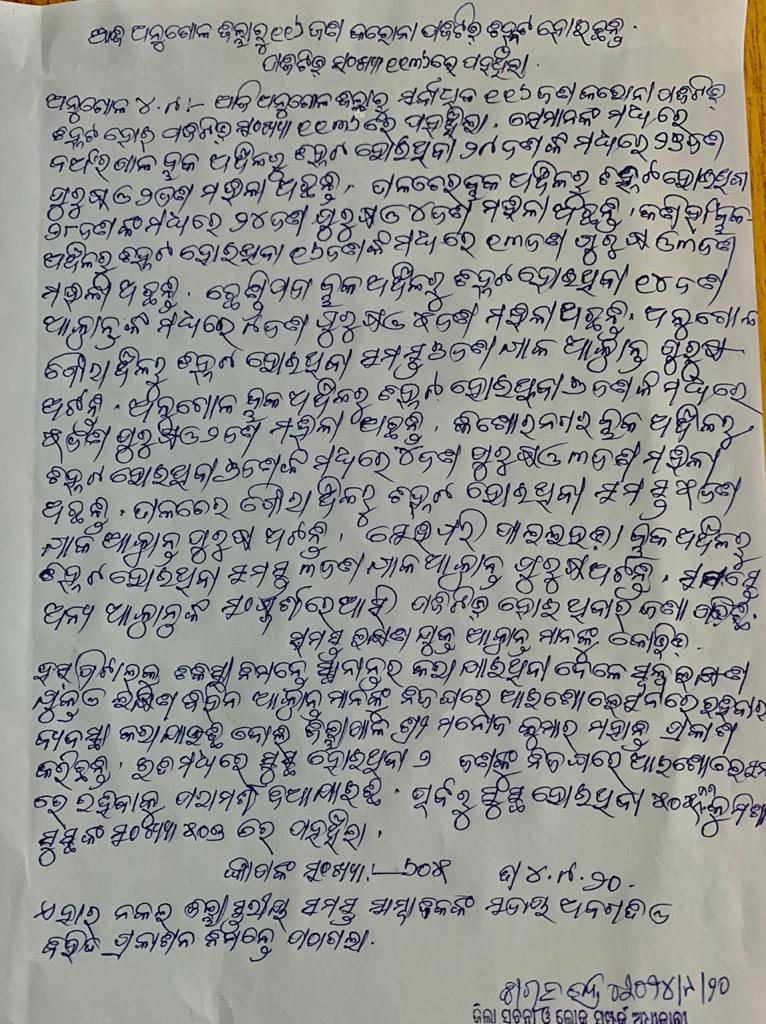 ଆଜି ଅନୁଗୋଳ ଜିଲ୍ଲାରୁ ୧୧୬ ଜଣ କରୋନା ପଜିଟିଭ୍ ଚିହ୍ନଟ ହୋଇଛନ୍ତି.
ପଜିଟିଭ୍ ସଂଖ୍ୟା ୧୧୩୬ରେ ପହଞ୍ଚିଲା.
ଅନୁଗୋଳ ୪.୯:- ଆଜି ଅନୁଗୋଳ ଜିଲ୍ଲାରୁ ସର୍ବାଧିକ ୧୧୬ ଜଣ କରୋନା ପଜିଟିଭ୍
ଚିହ୍ନଟ ହୋଇ ପଜିଟିଭ୍ ସଂଖ୍ୟା ୧୧୩୬ ରେ ପହଞ୍ଚିଲା. ସେମାନଙ୍କ ମଧ୍ୟରେ
ବଅଁରପାଳ ବ୍ଲକ ଅଞ୍ଚଳରୁ ଚିହ୍ନଟ ହୋଇଥିବା ଜଣଙ୍କ ମଧ୍ୟରେ
ପୁରୁଷ ଓ ୬ଜଣ ମହିଳା ଅଛନ୍ତି. ତାଳଚେର ବ୍ଲକ ଅଞ୍ଚଳରୁ ଚିହ୍ନଟ ହୋଇଥିବା
୨୮ଜଣଙ୍କ ମଧ୍ୟରେ ୨୪ଜଣ ପୁରୁଷ ଓ ୪ଜଣ ମହିଳା ଅଛନ୍ତି. କଣିହାଁ ବ୍ଲକ
ଅଞ୍ଚଳରୁ ଚିହ୍ନଟ ହୋଇଥିବା ୧୬ଜଣଙ୍କ ମଧ୍ୟରେ ୧୩ଜଣ ପୁରୁଷ ଓ ୩ଜଣ
ମହିଳା ଅଛନ୍ତି. ଛେଣ୍ଡିପଦା ବ୍ଲକ ଅଞ୍ଚଳରୁ ଚିହ୍ନଟ ହୋଇଥିବା ୧୪ଜଣ
ଆକ୍ରାନ୍ତଙ୍କ ମଧ୍ୟରେ ୯ଜଣ ପୁରୁଷ ଓ ୫ଜଣ ମହିଳା ଅଛନ୍ତି. ଅନୁଗୋଳ
ପୌରାଞ୍ଚଳରୁ ଚିହ୍ନଟ ହୋଇଥିବା ସମସ୍ତ ଜଣ ଯାକ ଆକ୍ରାନ୍ତ ପୁରୁଷ
ଅଟନ୍ତି. ଅନୁଗୋଳ ବ୍ଲକ ଅଞ୍ଚଳରୁ ଚିହ୍ନଟ ହୋଇଥିବା ୭ ଜଣଙ୍କ ମଧ୍ୟରେ
୫ଜଣ ପୁରୁଷ ଓ ୨ଜଣ ମହିଳା ଅଛନ୍ତି. କିଶୋରନଗର ବ୍ଲକ ଅଞ୍ଚଳରୁ
ଚିହ୍ନଟ ହୋଇଥିବା ୭ଜଣଙ୍କ ମଧ୍ୟରେ ୪ଜଣ ପୁରୁଷ ଓ ୩ଜଣ ମହିଳା
ଅଛନ୍ତି. ତାଳଚେର ପୌରାଞ୍ଚଳରୁ ଚିହ୍ନଟ ହୋଇଥିବା ସମସ୍ତ ୫ଜଣ
ଯାକ ଆକ୍ରାନ୍ତ ପୁରୁଷ ଅଟନ୍ତି. ସେହିପରି ପାଲଲହଡ଼ା ବ୍ଲକ ଅଞ୍ଚଳରୁ
ଚିହ୍ନଟ ହୋଇଥିବା ସମସ୍ତ ୩ଜଣ ଯାକ ଆକ୍ରାନ୍ତ ପୁରୁଷ ଅଟନ୍ତି. ସମସ୍ତେ
ଅନ୍ୟ ଆକ୍ରାନ୍ତଙ୍କ ସଂସ୍ପର୍ଶରେ ଆସି ପଜିଟିଭ୍ ହୋଇଥିବାର ଜଣା ପଡ଼ିଛି.
ସମସ୍ତ ଲକ୍ଷଣ ଯୁକ୍ତ ଆକ୍ରାନ୍ତ ମାନଙ୍କୁ କୋଭିଡ୍
ହସ୍ପିଟାଲକୁ ଚିକିତ୍ସା ନିମନ୍ତେ ସ୍ଥାନାନ୍ତର କରାଯାଇଥିବା ବେଳେ ସ୍ୱଳ୍ପ ଲକ୍ଷଣ
ଯୁକ୍ତ ଓ ଲକ୍ଷଣ ବିହୀନ ଆକ୍ରାନ୍ତ ମାନଙ୍କ ନିଜ ଘରେ ଆଇଶୋଲେସନରେ ରହିବାର
ବ୍ୟବସ୍ଥା କରାଯାଇଛି ବୋଲି ଜିଲ୍ଲାପାଳ ଶ୍ରୀ ମନୋଜ କୁମାର ମହାନ୍ତି ପ୍ରକାଶ
କରିଛନ୍ତି. ଇତିମଧ୍ୟରେ ସୁସ୍ଥ ହୋଇଥିବା ୨ ଜଣଙ୍କୁ ନିଜ ଘରେ ଆଇଶୋଲେସନ
ରେ ରହିବାକୁ ପରାମର୍ଶ ଦିଆଯାଇଛି. ପୂର୍ବରୁ ସୁସ୍ଥ ହୋଇଥିବା
ସୁସ୍ଥଙ୍କ ସଂଖ୍ୟା ରେ ପହଞ୍ଚିଲା.
ଜ୍ଞାପନାଙ୍କ ସଂଖ୍ୟା:- ୬୦୫ ତା ୪.୯.୨୦.
ଏହାର ନକଲ ଜିଲ୍ଲାସ୍ତରୀୟ ସମସ୍ତ ସାମ୍ବାଦିକଙ୍କ ସଦୟ ଅବଗତି ଓ
ବହୁଳ ପ୍ରକାଶନ ନିମନ୍ତେ ପଠାଗଲା.
୪/୯/୨୦
ଜିଲା ସୂଚନା ଓ ଲୋକ ସମ୍ପର୍କ ଅଧିକାରୀ